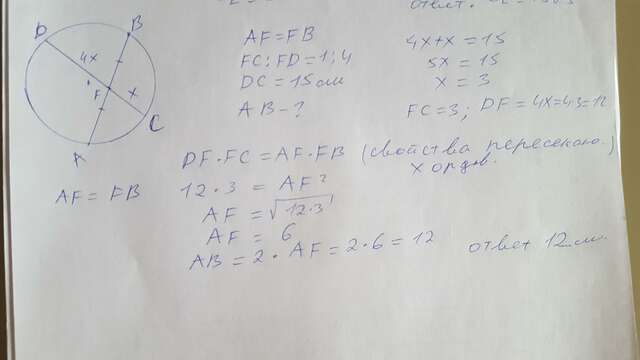 ответ.
D
B
4x
F
x
C
A
AF = FB
AF = FB
FC : FD = 1 : 4
DC = 15 см
AB - ?
4x+x = 15
5x = 15
x = 3
FC = 3 ; DF = 4x = 4·3 = 12
DF · FC = AF · FB (свойства пересекаю.
х хорд.
12 · 3 = AF²
AF = √12·3
AF = 6
AB = 2 · AF = 2·6 = 12
ответ 12 см.